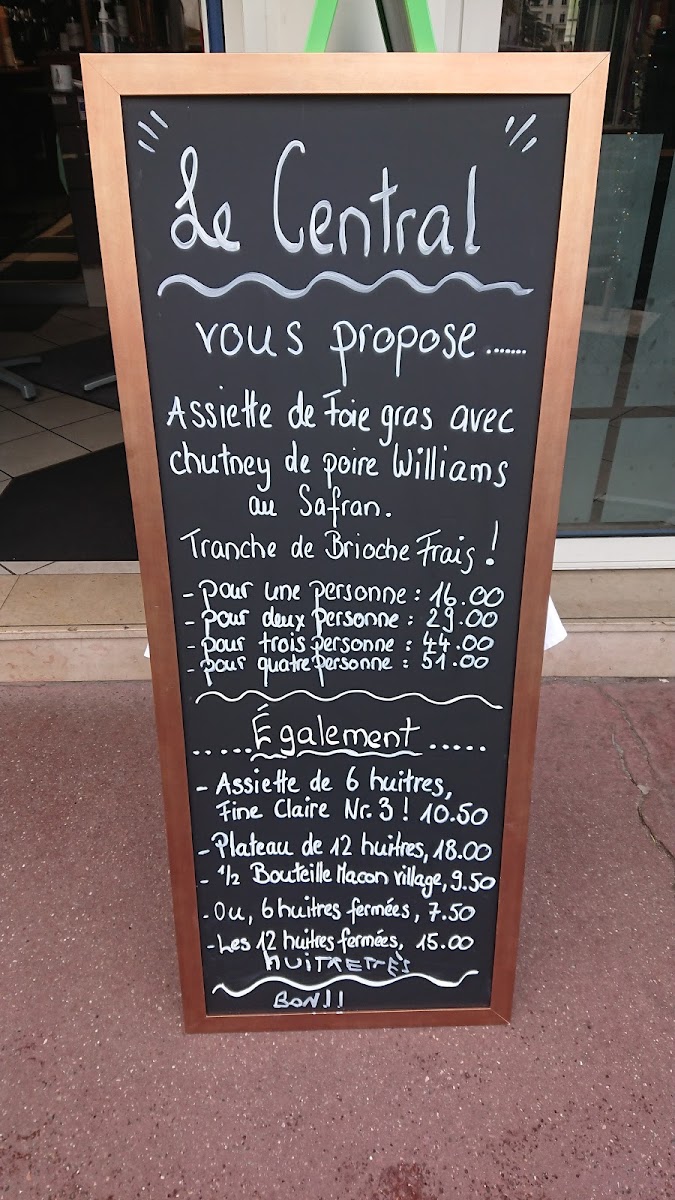 Le Central
vous propose.......
Assiette de Foie gras avec
chutney de poire Williams
au Safran.
Tranche de Brioche Frais !
- pour une personne : 16.00
- pour deux personne : 29.00
- pour trois personne : 44.00
- pour quatre personne : 51.00
.....Également.....
- Assiette de 6 huitres,
Fine Claire Nr.3 ! 10.50
- Plateau de 12 huitres, 18.00
- 1/2 Bouteille Macon village, 9.50
- Ou, 6 huitres fermées, 7.50
- Les 12 huitres fermées, 15.00
HUITRETTÈS
BON!!